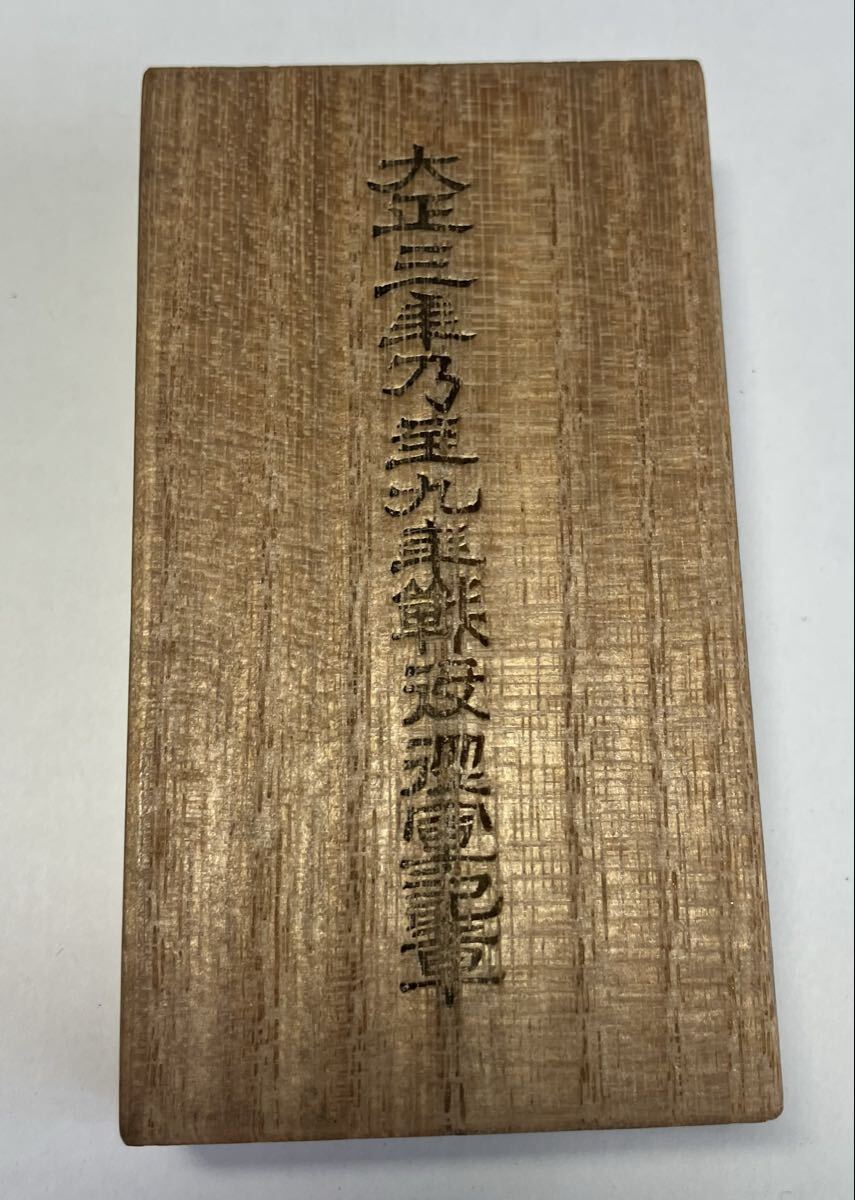 大正三年乃至九年戰役從軍記章